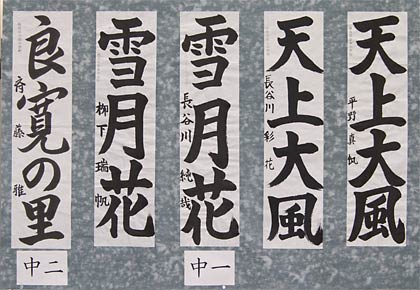 天上大風
平野真帆
天上大風
長谷川彩花
雪月花
長谷川純哉
中一
雪月花
柳下瑞帆
良寛の里
斉藤雅
中二